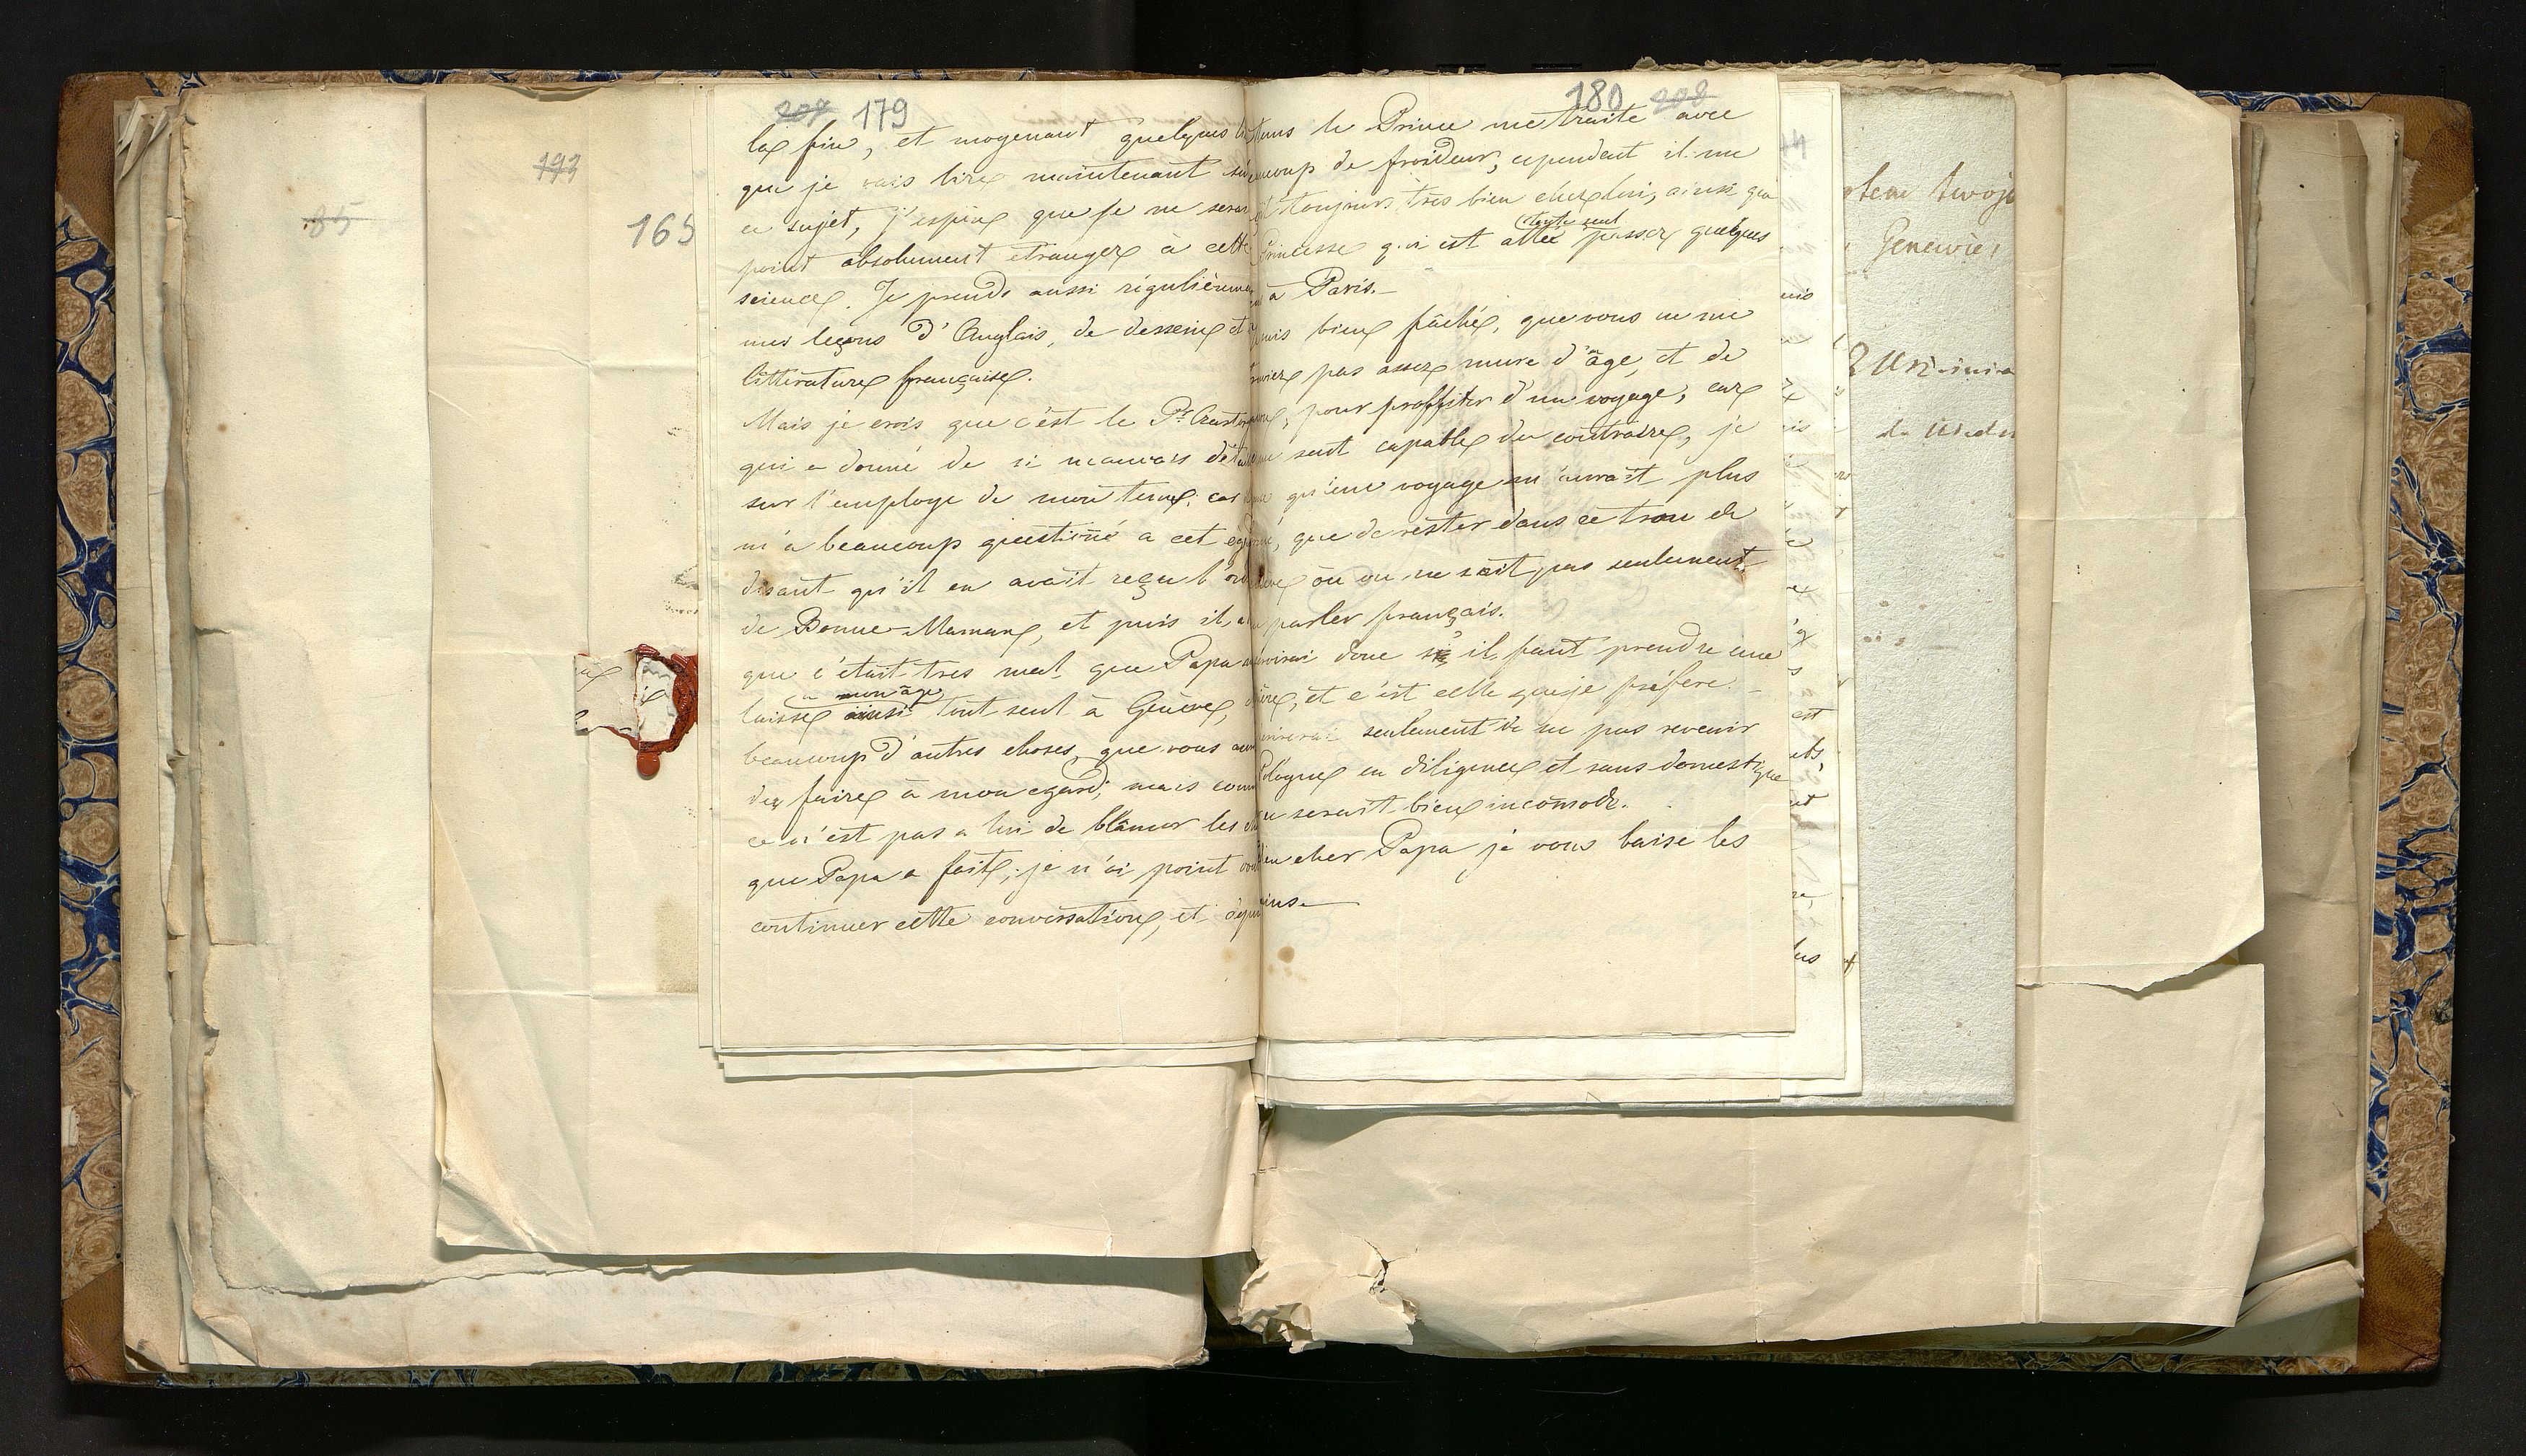 85
193
165
207 179
la fin, et moyenant quelques li
que je vais lire maintenant su
ce sujet, j'espère que je ne serai
point absolument etranger à cette
science. Je prends aussi régulièreme
mes leçons d'Anglais, de dessein et
littérature française.
Mais je crois que c'est le Pce
qui a donné de si mauvais détail
sur l'employe de mon tems; car
m'a beaucoup questioné a cet ega
disant qu'il en avait reçu l'or
de Bonne-Maman, et puis il a
que c'était tres mal que Papa
à mon âge
laisse ainsi tout seul à Genève,
beaucoup d'autres choses, que vous
du faire à mon egard; mais com
ce n'est pas a lui de blâmer les
que Papa a fait, je n'ai point vou
continuer cette conversation, et depu
180 208
tems le Prince me traite avec
aucoup de froideur, cependent il me
çoit toujours très bien chez lui, ainsi que
toute seul
Princesse qui est allée passer quelques
à Paris.
suis bien fâché, que vous ne me
pas assez mure d'âge, et de
pour proffiter d'un voyage; car
me sent capable du contraire, je
qu'un voyage m'aurait plus
que de rester dans ce trou de
nève où on ne sait pas seulement
parler français.
donc s'il faut prendre une
ière, et c'est celle que je préfère.
seulement de ne pas revenir
Pologne en diligence et sans domestique
ce serait bien incomode.
dieu cher Papa je vous baise les
ains.
Genewie